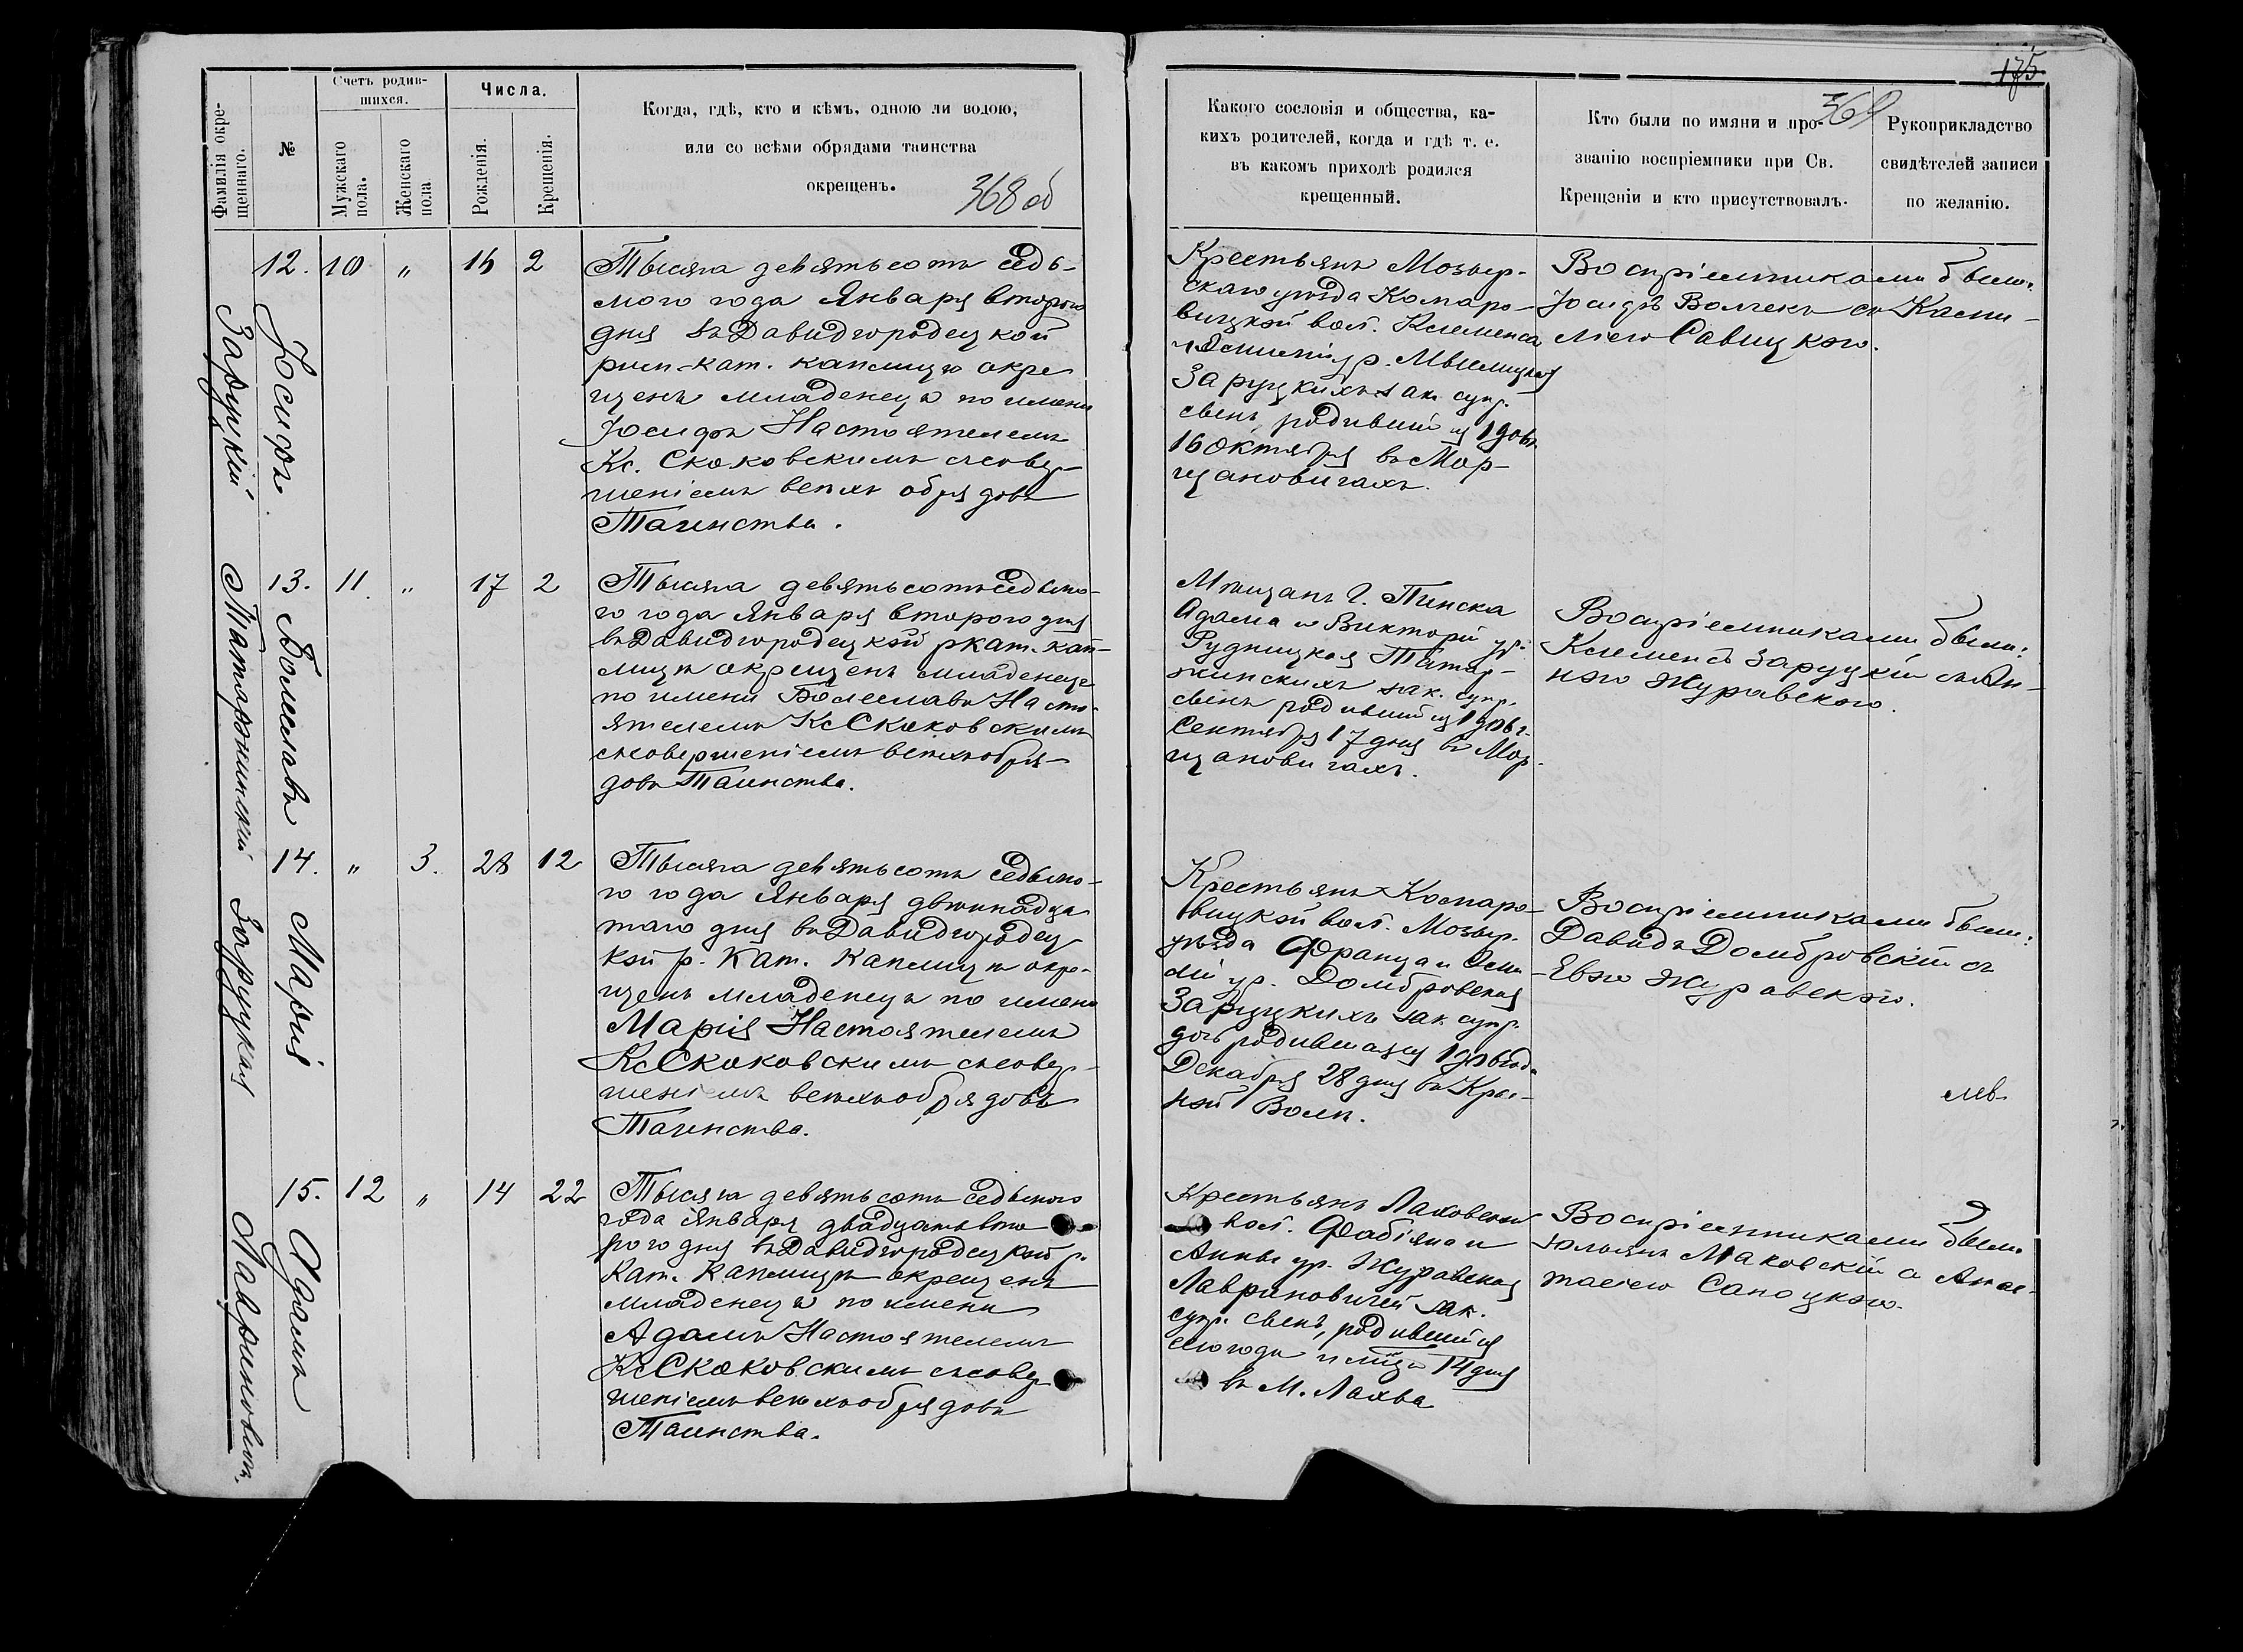 175
369
368 об
Фамилія окре-
щеннаго.
№
Счетъ родив-
шихся.
Мужскаго
пола.
Женскаго
пола
Числа.
Рожденія.
Крещенія.
Когда, гдѣ, кто и кѣмъ, одною ли водою,
или со всѣми обрядами таинства
окрещенъ.
Какого сословія и общества, ка-
кихъ родителей, когда и гдѣ т. е.
въ какомъ приходѣ родился
крещенный.
Кто были по имяни и про-
званію воспріемники при Св.
Крещэніи и кто присутствовалъ.
Рукоприкладство
свидѣтелей записи
по желанію.
Заруцкій
Іосифъ.
12. 10 " 16 2
Тысяча девятьсотъ седь-
мого года Января второго
дня въ Давидгородецкой
рим-кат. каплицѣ окре
щенъ младенецъ по имени
Іосифъ Настоятелемъ
Кс. Скоковскимъ съ совер-
шеніемъ всѣхъ обрядовъ
Таинства.
Крестьянъ Мозыр-
скаго уѣзда Комаро-
вицкой вол. Клеменса
и ур. Мыслицкая
Заруцкихъ зак. супр.
сынъ, родившійся 1906 г.
16 Октября въ Мор-
щановичахъ.
Воспріемниками были:
Іосифъ Волчекъ съ Касти-
лiею Савицкою.
Татаржинскій
Болеславъ
13. 11. " 17 2
Тысяча девятьсотъ седьмо-
го года Января второго дня
въ Давидгородецкой р кат. кап-
лицѣ окрещенъ младенецъ
по имени Болеславъ Насто-
ятелемъ Кс Скоковскимъ
съ совершеніемъ всѣхъ обря-
довъ Таинства.
Мѣщанъ г. Пинска
Адама и Викторіи ур.
Рудницкая Татар-
жинскихъ зак. супр.
сынъ родившійся 1906 г.
Сентября 17 дня въ Мор-
щановичахъ.
Воспріемниками были:
Клеменсъ Заруцкій съ Ан-
ною Журавскою.
Заруцкая
Марія
14. " 3. 28 12
Тысяча девятьсотъ седьмо-
го года Января двѣнадца
таго дня въ Давидгородец-
кой р. Кат. Каплицѣ окре-
щенъ младенецъ по имени
Марія Настоятелемъ
Кс Скоковскимъ съ совер-
шеніемъ всѣхъ обрядовъ
Таинства.
Крестьянъ Комаро-
вицкой вол. Мозыр.
уѣзда Франца и
ур. Домбровская
Заруцкихъ зак. супр.
дочь родившаяся 1906 года
Декабря 28 дня въ Крас-
ной Волѣ.
Воспріемниками были:
Давидъ Домбровскій съ
Евою Журавскою.
Лавриновичъ.
Адамъ
15. 12 " 14 22
Тысяча девятьсотъ седьмого
года Января двадцать вто
рого дня въ Давидгородецкой р.
Кат. Каплицѣ окрещенъ
младенецъ по имени
Адамъ Настоятелемъ
Кс Скоковскимъ съ совер
шеніемъ всѣхъ обрядовъ
Таинства.
Крестьянъ Лаховской
вол. Фабіяна и
Анны ур. Журавская
Лавриновичей зак.
супр. сынъ, родившійся
сего года и мѣс. 14 дня
въ М. Лахва
Воспріемниками были
Юльянъ Маковскій съ Анас-
тасіею Сапоцкою.